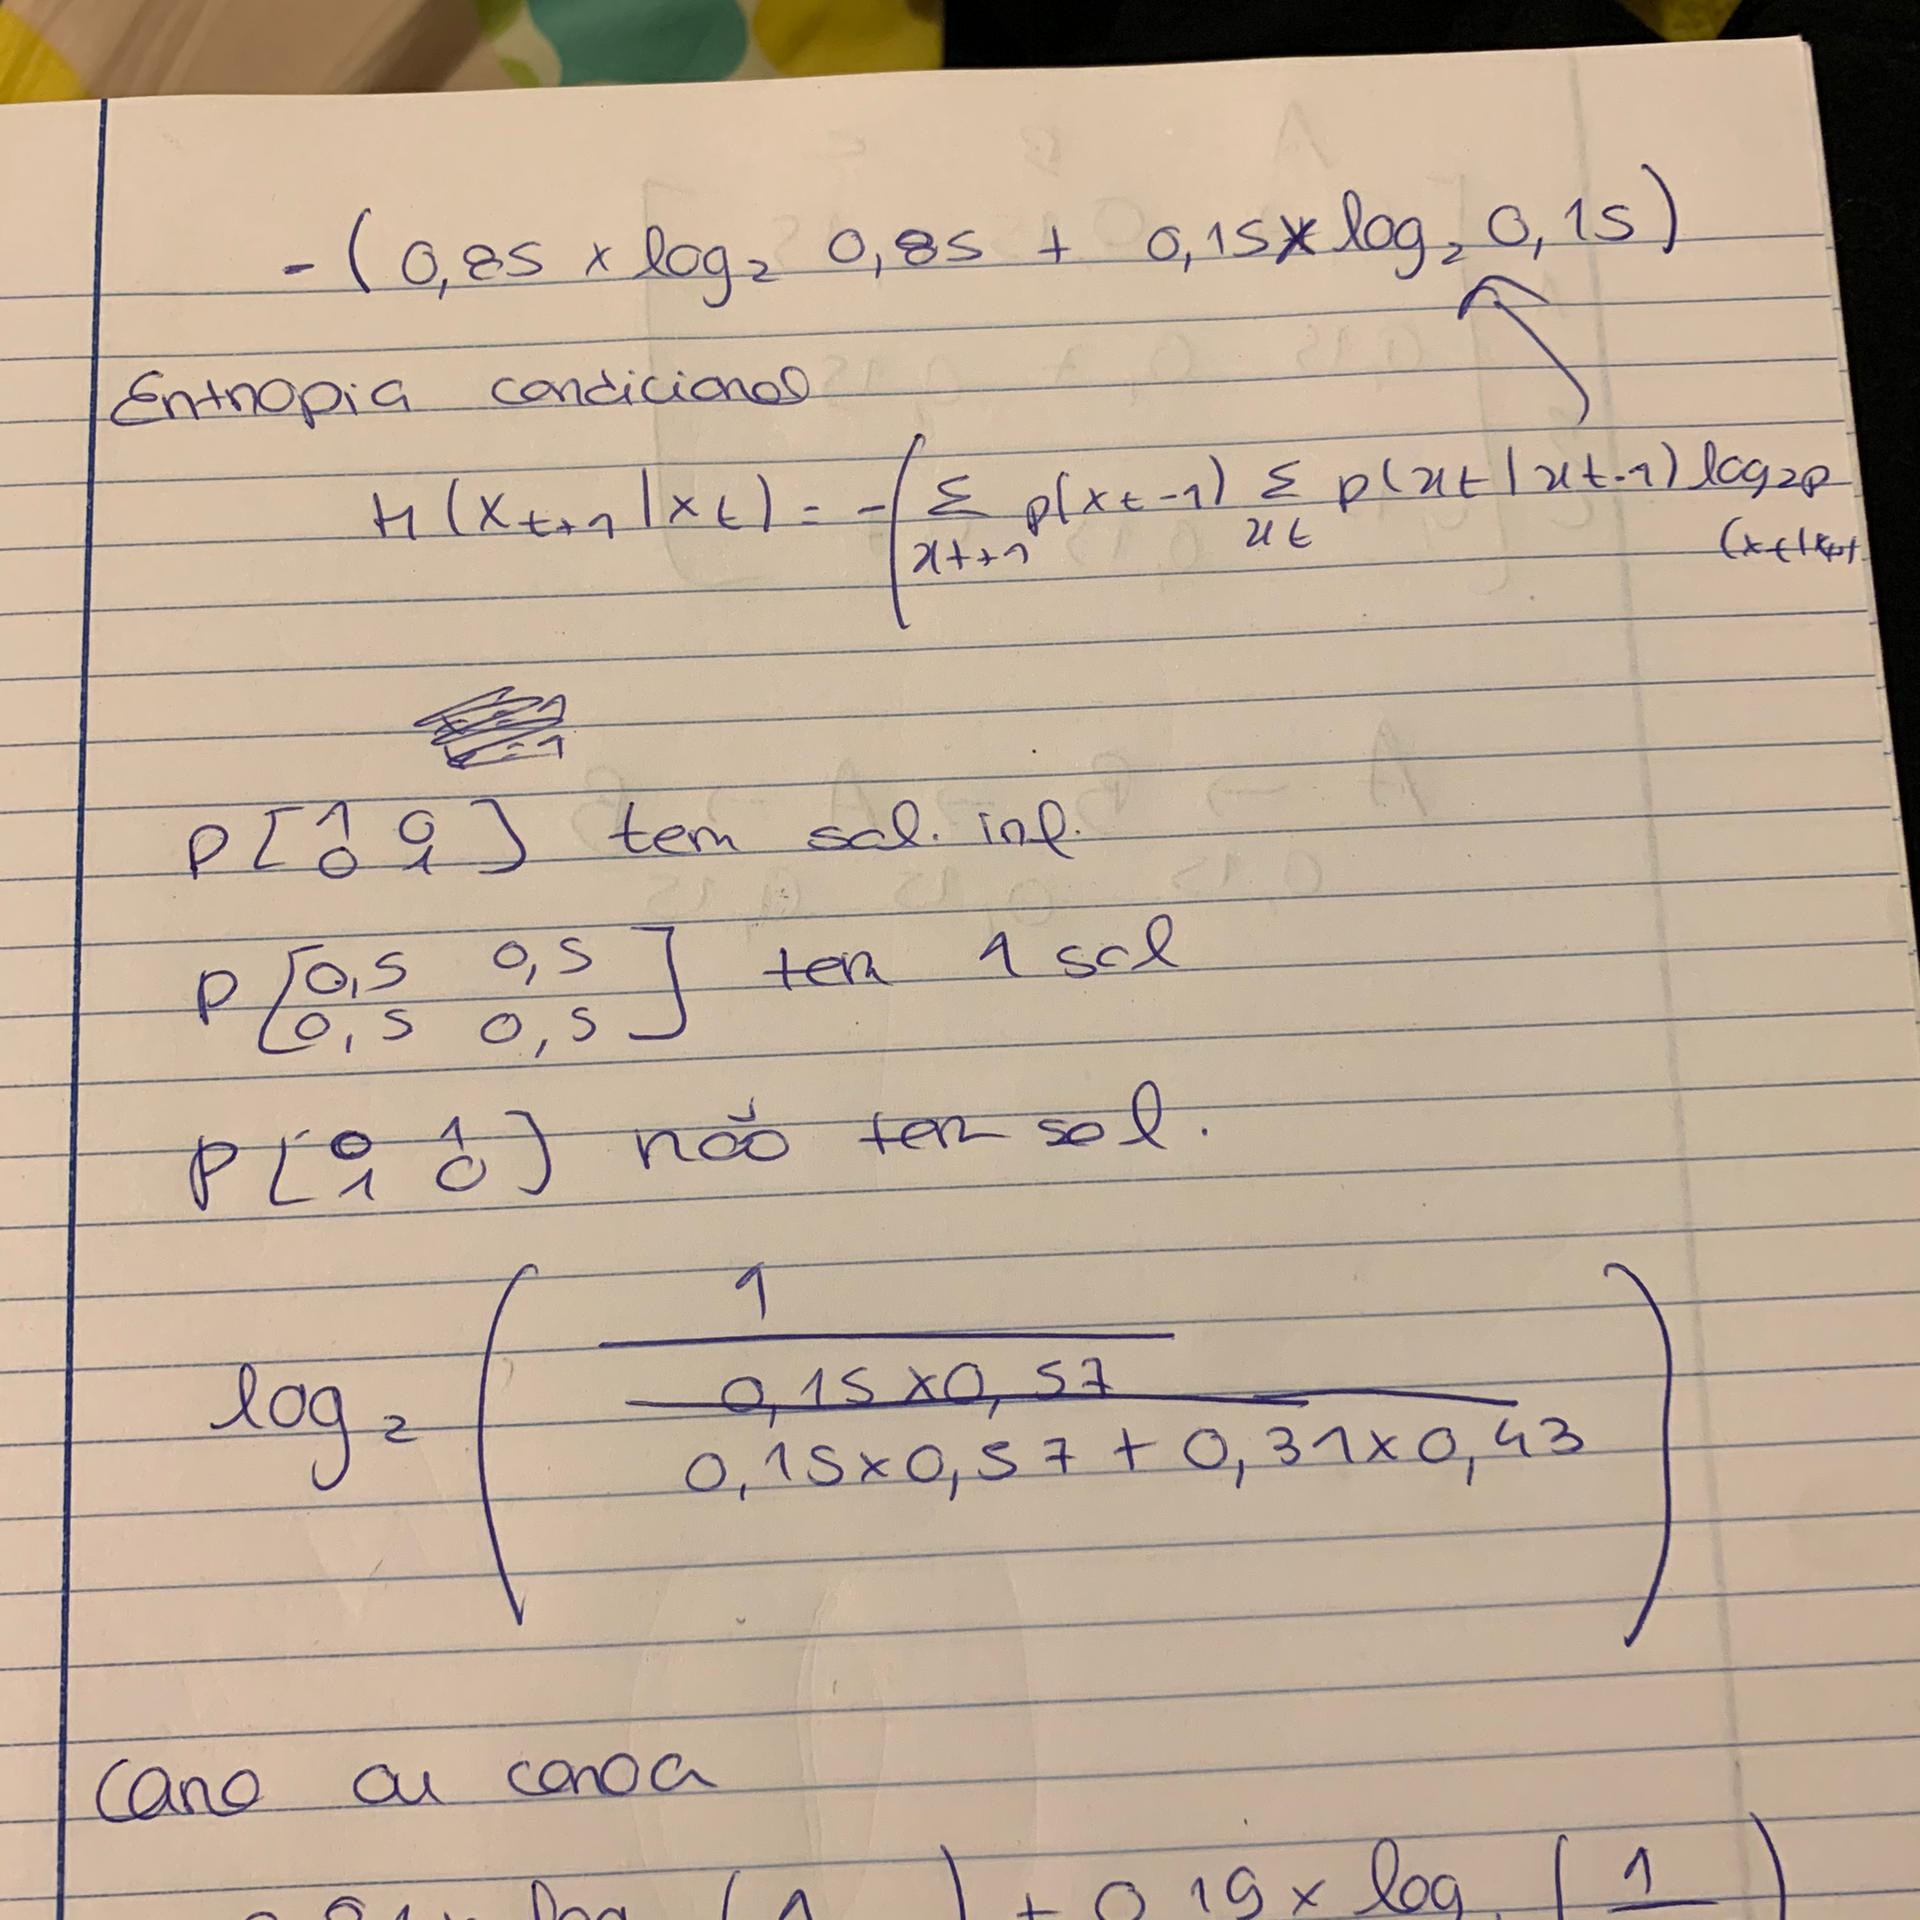 - ( 0,85 x log₂ 0,85 + 0,15 x log₂ 0,15 )
Entropia condicional
H ( x t+1 | x t ) = - ( Σ x t+1 p(x t-1) Σ x t p( x t | x t-1 ) log 2 p
(x t | x
P [ 1 0
0 1 ] tem sol. inf.
P [ 0,5 0,5
0,5 0,5 ] tem 1 sol
P [ 0 1
1 0 ] não tem sol.
1
0,15 x 0,57
log₂ ( 0,15 x 0,57 + 0,31 x 0,43 )
Cara ou coroa
log ( 1 ) + 0,19 x log ( 1 )